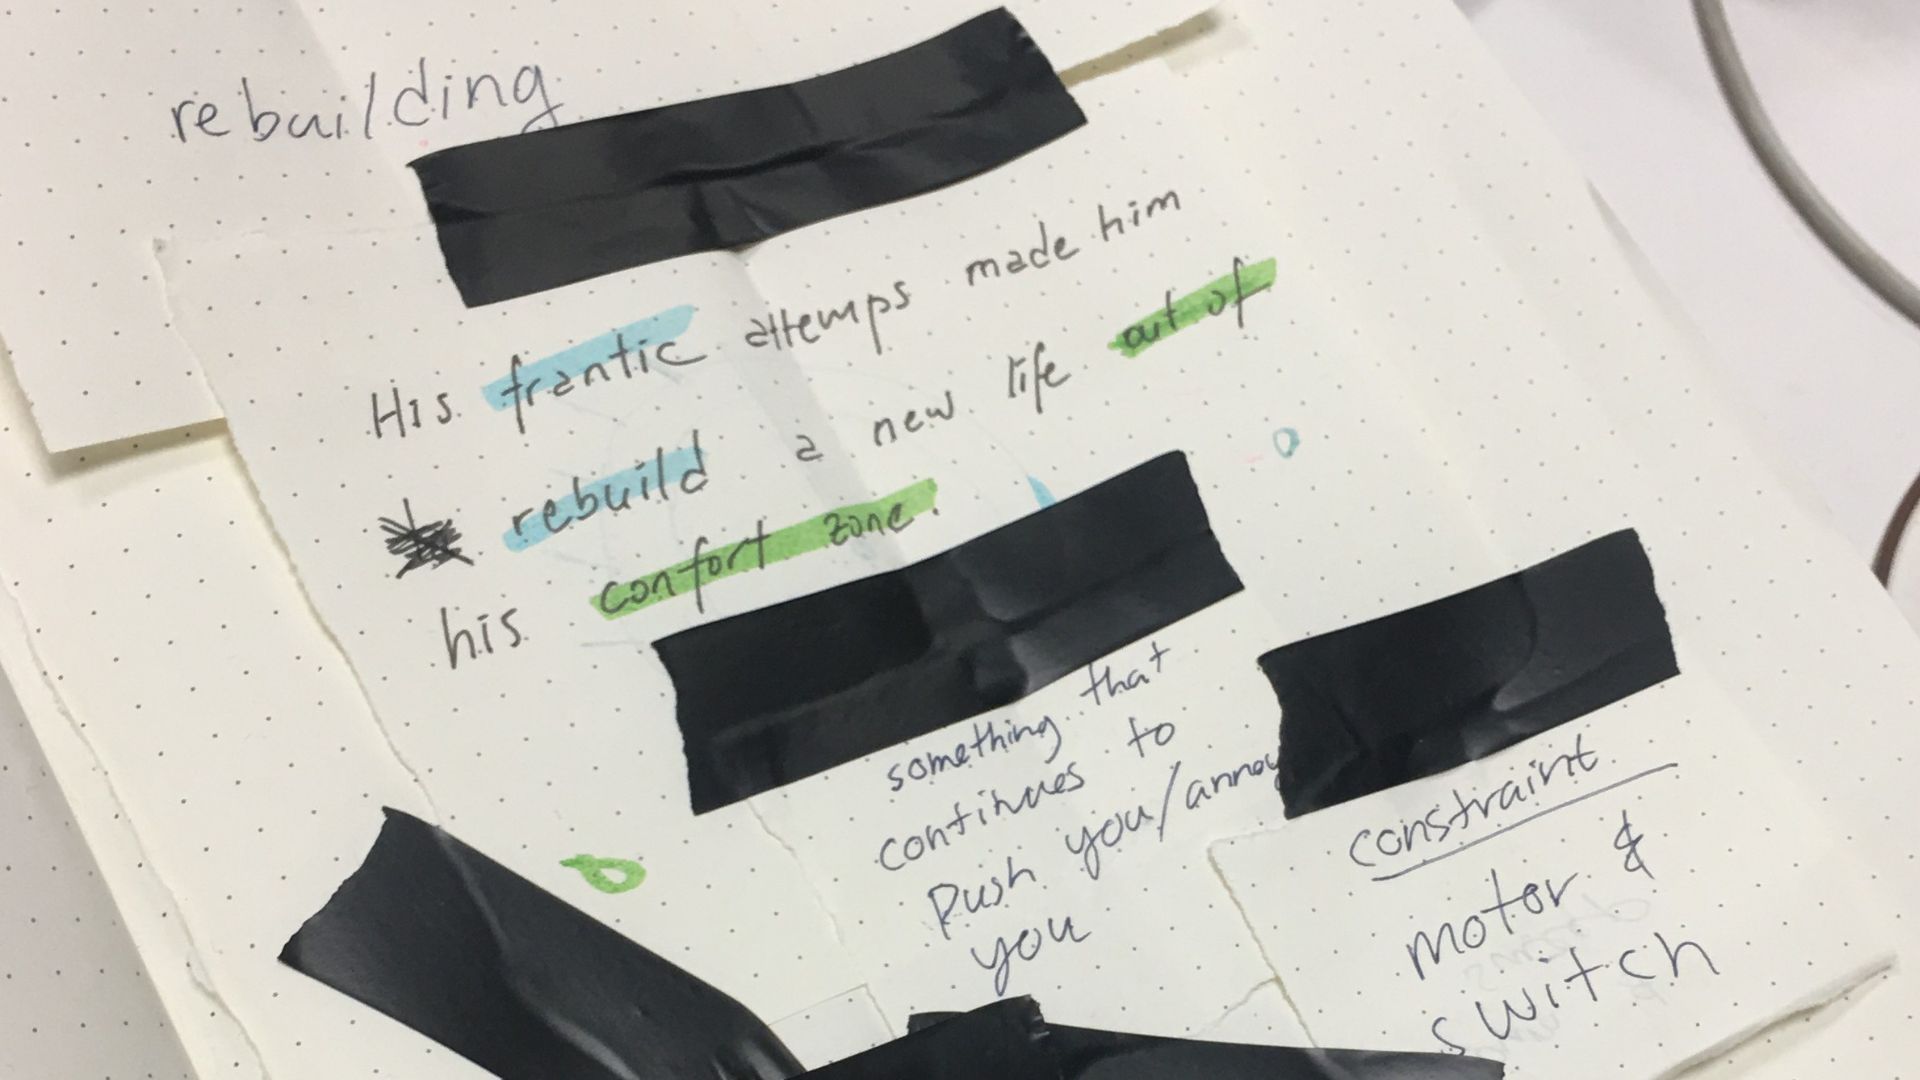 rebuilding
His frantic attemps made him
rebuild a new life out of
his confort zone.
something that
continues to
Push you/annoy
you
constraint
motor &
switch